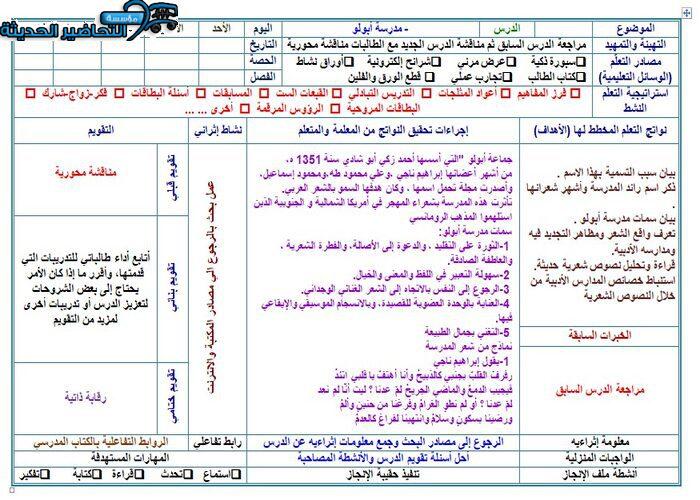 مؤسسة
التحاضير الحديثة
الموضوع
الدرس
- مدرسة أبولو
اليوم
الأحد
التهيئة والتمهيد
مراجعة الدرس السابق ثم مناقشة الدرس الجديد مع الطالبات مناقشة محورية
التاريخ
مصادر التعلم
(الوسائل التعليمية)
سبورة ذكية
عرض مرئي
شرائح إلكترونية
أوراق نشاط
الحصة
كتاب الطالب
تجارب عملي
قطع الورق والفلين
الفصل
استراتيجية التعلم
النشط
فرز المفاهيم
أعواد المثلجات
التدريس التبادلي
القبعات الست
المسابقات
أسئلة البطاقات
فكر-زواج-شارك
البطاقات المروحية
الرؤوس المرقمة
أخرى ... ...
نواتج التعلم المخطط لها (الأهداف)
إجراءات تحقيق النواتج من المعلمة والمتعلم
نشاط إثرائي
التقويم
بيان سبب التسمية بهذا الاسم .
ذكر اسم رائد المدرسة وأشهر شعرانها
.
بيان سمات مدرسة أبولو .
تعرف واقع الشعر ومظاهر التجديد فيه
ومدارسه الأدبية.
قراءة وتحليل نصوص شعرية حديثة.
استنباط خصائص المدارس الأدبية من
خلال النصوص الشعرية
الخبرات السابقة
مراجعة الدرس السابق
جماعة أبولو "التي أسسها أحمد زكي أبو شادي سنة 1351 ه،
من أشهر أعضائها إبراهيم ناجي ،وعلي محمود طه،ومحمود إسماعيل،
وأصدرت مجلة تحمل اسمها ، وكان هدفها السمو بالشعر العربي.
تأثرت هذه المدرسة بشعراء المهجر في أمريكا الشمالية و الجنوبية الذين
استلهموا المذهب الرومانسي
سمات مدرسة أبولو:
1-الثورة علي التقليد ، والدعوة إلى الأصالة، والفطرة الشعرية ،
والعاطفة الصادقة.
2-سهولة التعبير في اللفظ والمعنى والخيال.
3-الرجوع إلى النفس بالاتجاه إلى الشعر الغنائي الوجداني.
4-العناية بالوحدة العضوية للقصيدة، وبالانسجام الموسيقي والإيقاعي
فيها.
5-التغني بجمال الطبيعة
نماذج من شعر المدرسة
1-يقول إبراهيم ناجي
رفرف القلب بجنبي كالذبيح وأنا أهتف يا قلبي اتئد
فيجيب الدمع والماضي الجريح لم عدنا ؟ ليت أنا لم نعد
لم عدنا ؟ أو لم نطو الغرام وفرغنا من حنين وألم
ورضينا بسكون وسلام وانتهينا لفراغ كالعدم
عمل بحث بالرجوع الي مصادر المكتبة والانترنت
تقويم قبلي
مناقشة محورية
تقويم بنائي
أتابع أداء طالباتي للتدريبات التي
قدمتها، وأقرر ما إذا كان الأمر
يحتاج إلى بعض الشروحات
لتعزيز الدرس أو تدريبات أخرى
لمزيد من التقويم
تقويم ختامي
رقابة ذاتية
معلومة إثرائيه
الرجوع إلى مصادر البحث وجمع معلومات إثراءيه عن الدرس
رابط تفاعلي
الروابط التفاعلية بالكتاب المدرسي
الواجبات المنزلية
أحل أسئلة تقويم الدرس والأنشطة المصاحبة
المهارات المستهدفة
أنشطة ملف الإنجاز
تنفيذ حقيبة الإنجاز
استماع
تحدث
قراءة
كتابة
تفكير